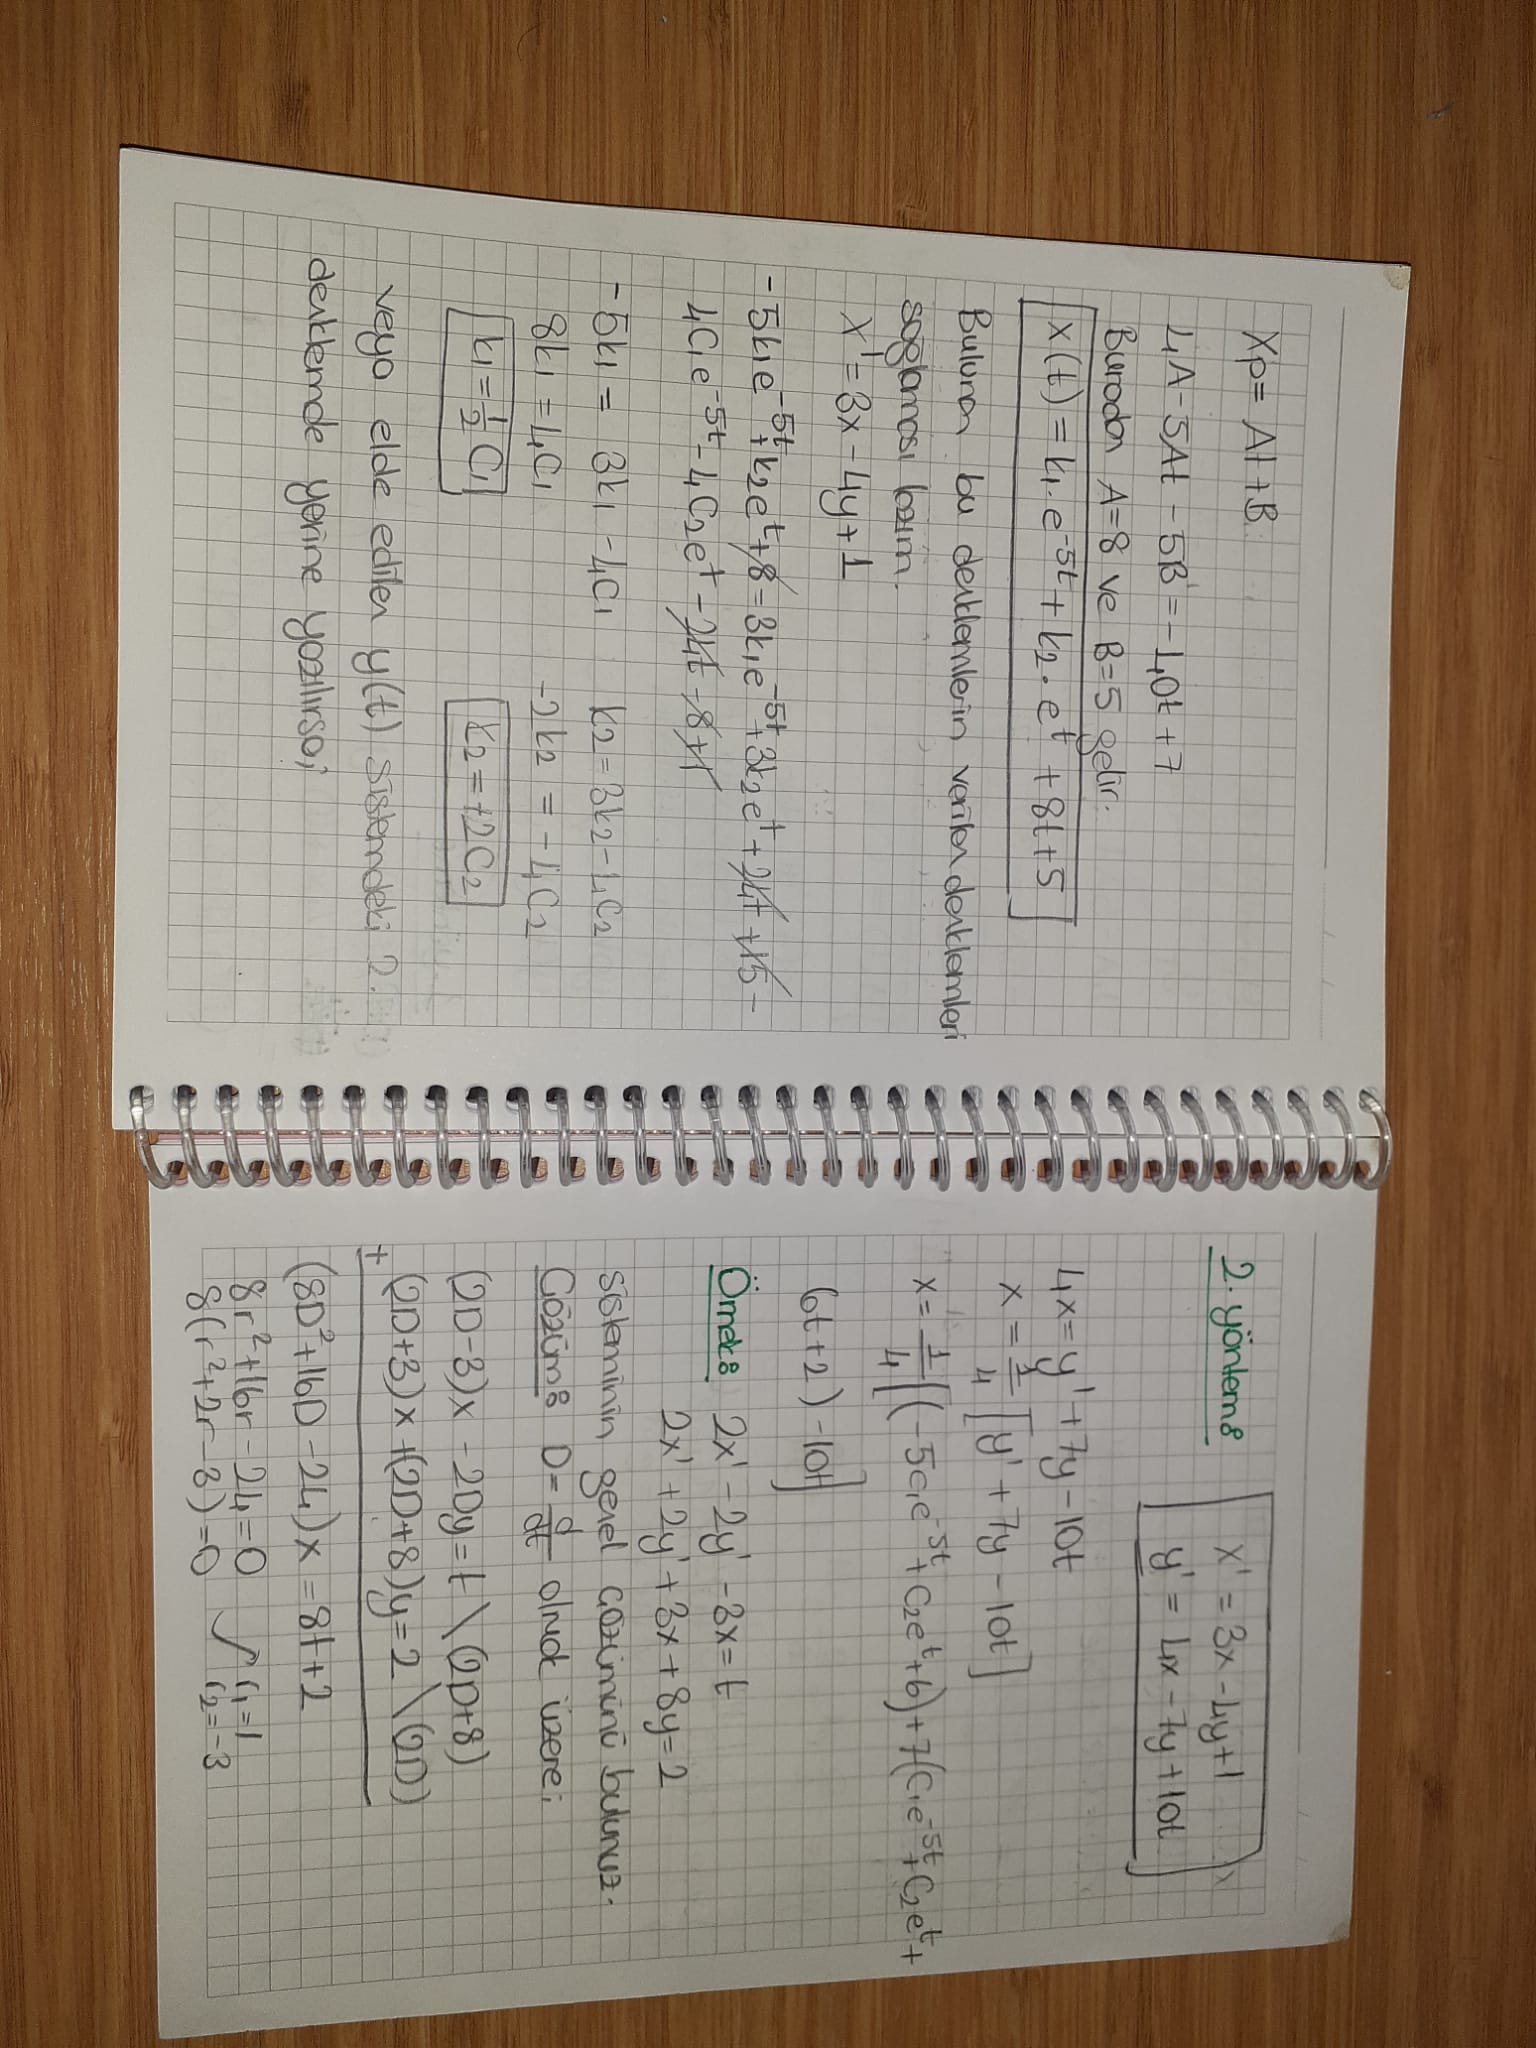 Xp= At+B
4A-5At-5B=-40t+7
Buradan A=8 ve B=5 gelir.
x(t)=k₁.e⁻⁵ᵗ+k₂.eᵗ+8t+5
Bulunan bu denklemlerin verilen denklemleri
sağlaması lazım.
x'=3x-4y+1
-5k₁e⁻⁵ᵗ+k₂eᵗ+8=3k₁e⁻⁵ᵗ+3k₂eᵗ+24t+15-
4C₁e⁻⁵ᵗ-4C₂eᵗ-24t-8+1
-5k₁ = 3k₁-4C₁ k₂=3k₂-4C₂
8k₁=4C₁ -2k₂ = -4C₂
k₁=1/2 C₁ k₂=+2C₂
veya elde edilen y(t) sistemdeki 2.
denklemde yerine yazılırsa;
2. yöntem:
x' = 3x-4y+1
y' = 4x-7y+10t
4x=y'+7y-10t
x=1/4 [y'+7y-10t]
x=1/4[(-5c₁e⁻⁵ᵗ+C₂eᵗ+6)+7(C₁e⁻⁵ᵗ+C₂eᵗ+
6t+2)-10t]
Örnek: 2x'-2y'-3x=t
2x'+2y'+3x+8y=2
sisteminin genel çözümünü bulunuz.
Çözüm: D=d/dt olmak üzere;
(2D-3)x-2Dy=t \ (2D+8)
+ (2D+3)x+(2D+8)y=2 \ (2D)
(8D²+16D-24)x=8t+2
8r²+16r-24=0 r₁=1
8(r²+2r-3)=0 r₂=-3